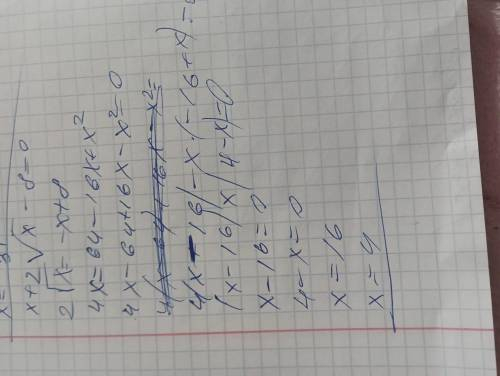 x+2√x - 8=0
2√x = -x+8
4x=64-16x+x²
4x-64+16x-x²=0
4(x-16)-x·(-16+x)=
(x-16)x(4-x)=0
x-16=0
4-x=0
x=16
x=4